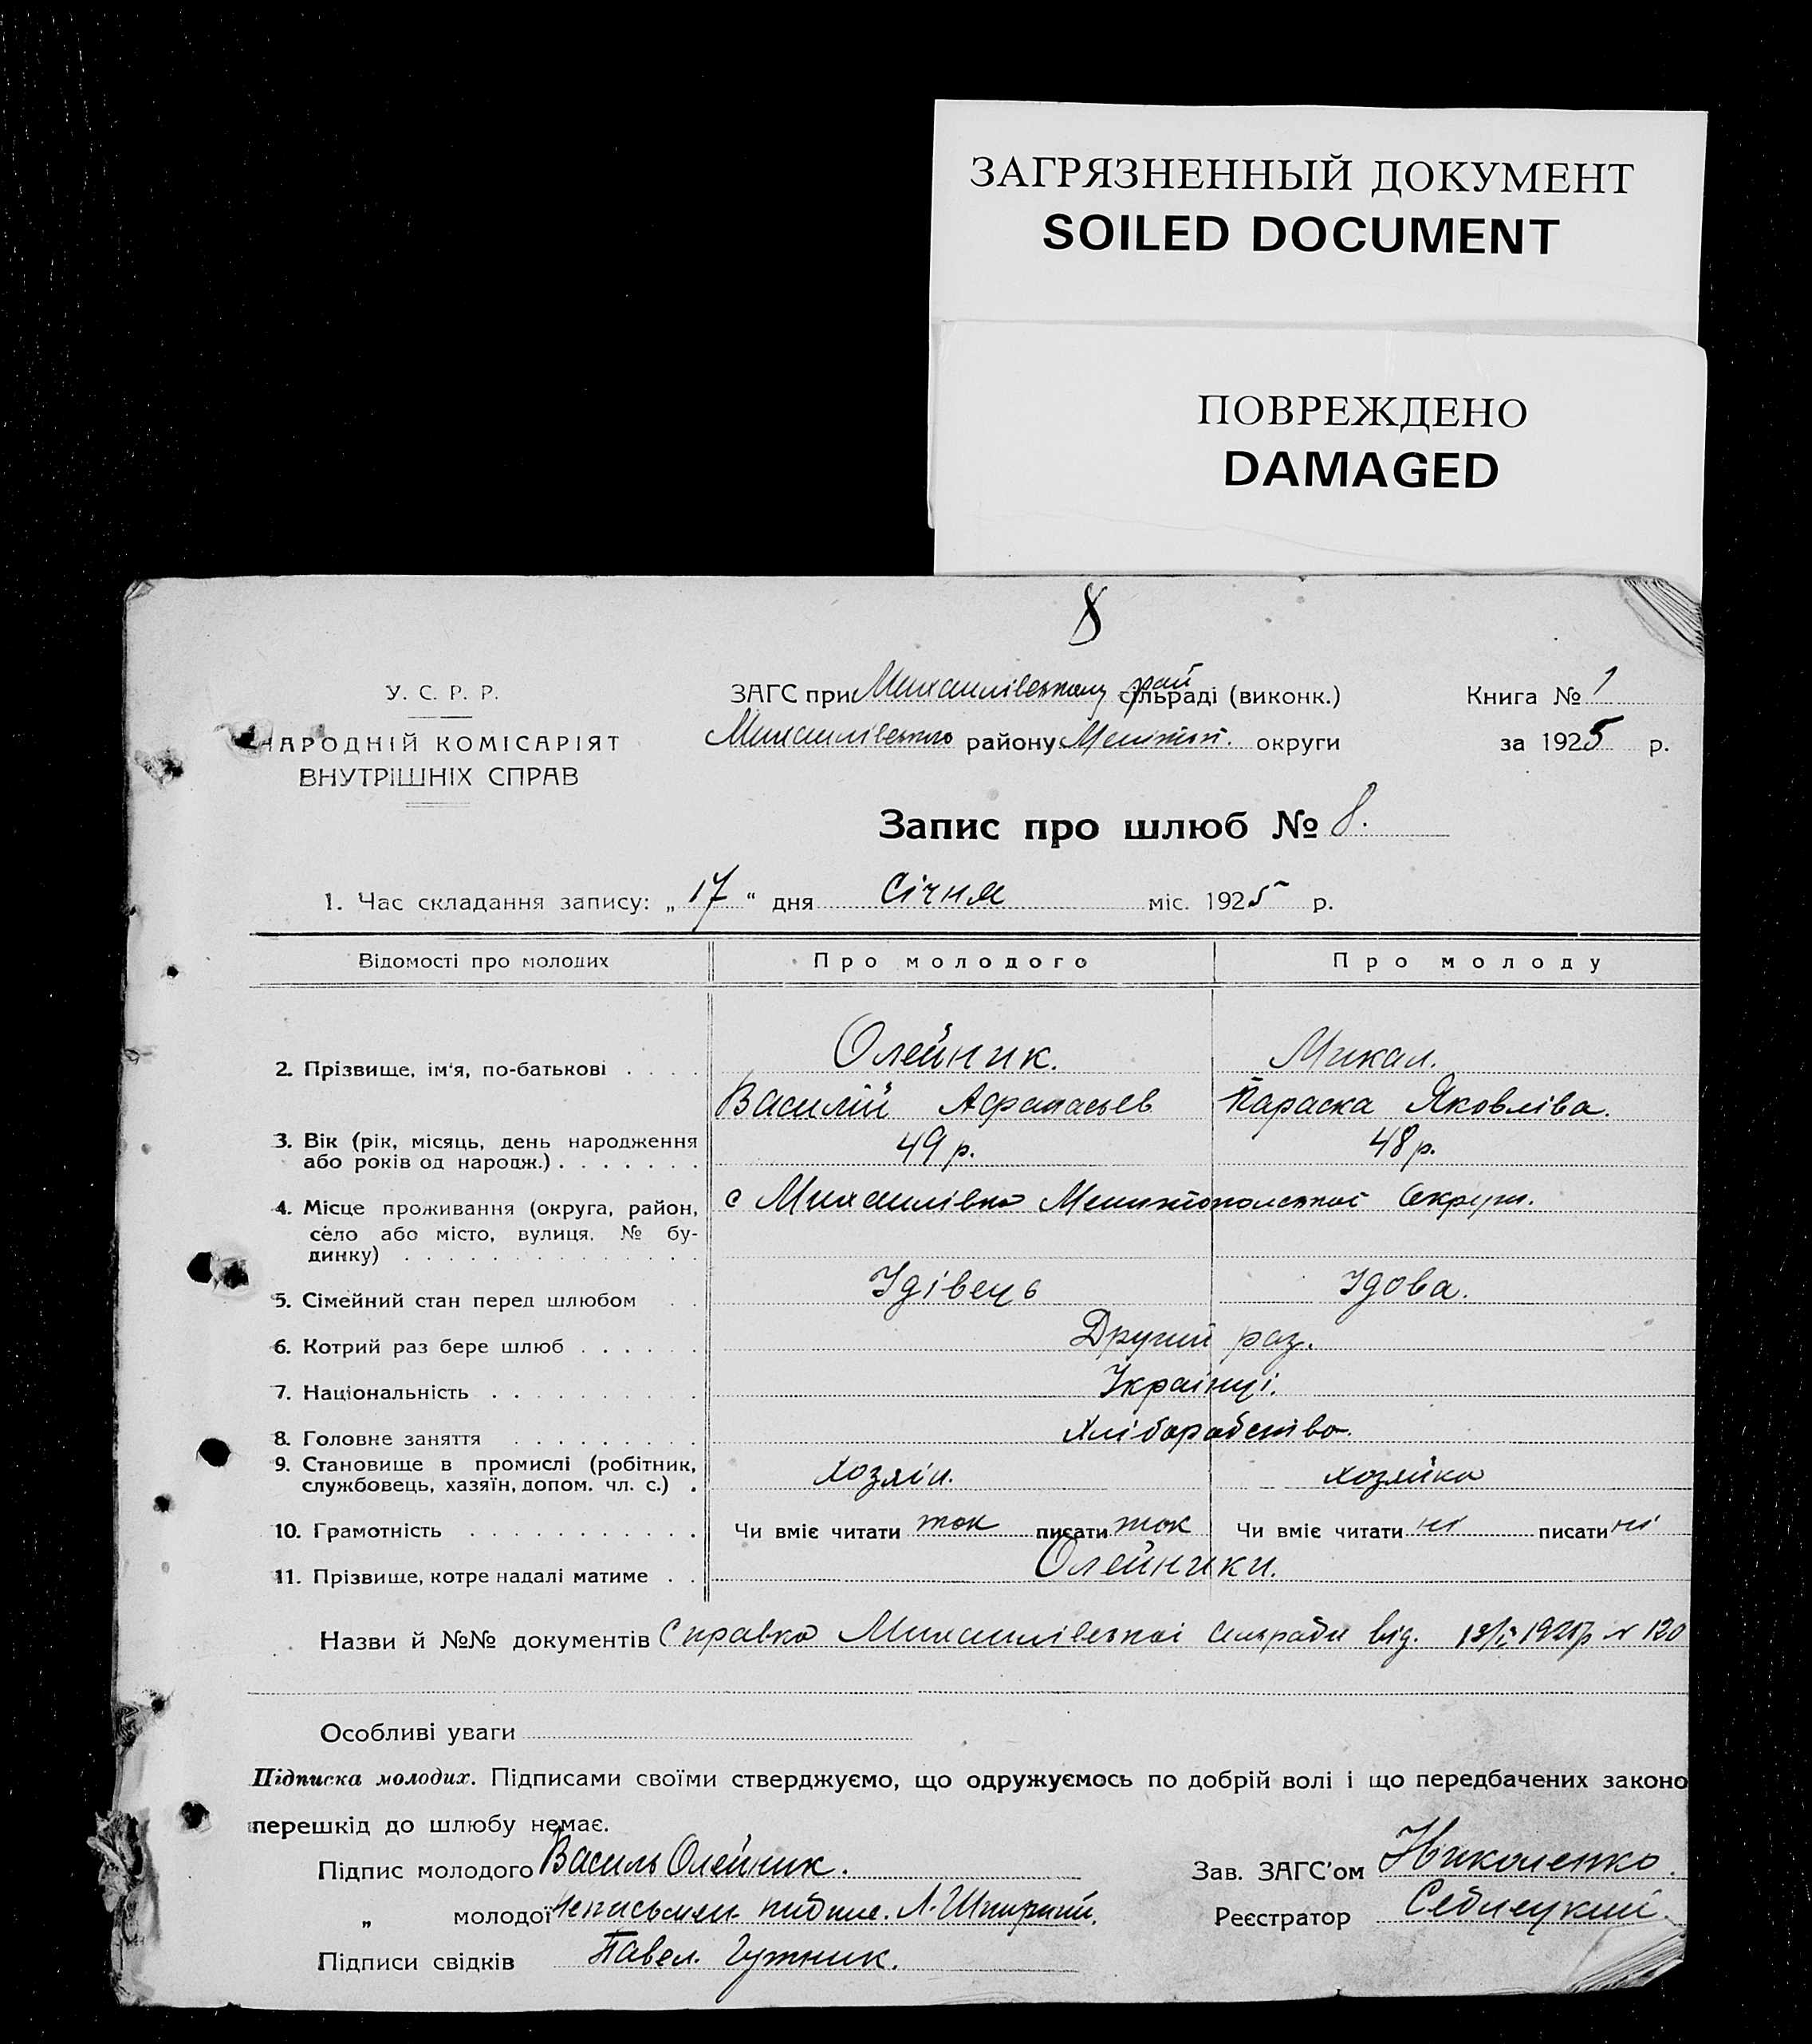 ЗАГРЯЗНЕННЫЙ ДОКУМЕНТ
SOILED DOCUMENT
ПОВРЕЖДЕНО
DAMAGED
8
У. С. Р. Р.
НАРОДНІЙ КОМІСАРІЯТ
ВНУТРІШНІХ СПРАВ
ЗАГС при Михайлівському рай сільраді (виконк.)
Михайлівського району Меліт. округи
Книга № 1
за 1925 р.
Запис про шлюб № 8.
1. Час складання запису: „ 17 “ дня Січня міс. 1925 р.
Відомості про молодих Про молодого Про молоду
2. Прізвище, ім‘я, по-батькові . . . . Олейник. Микал.
Василій Афанасьев Параска Яковліва.
3. Вік (рік, місяць, день народження
або років од народж.) . . . . . . . 49 р. 48 р.
4. Місце проживання (округа, район, с Михайлівка Мелитопольскоі Округи.
село або місто, вулиця, № бу-
динку) . . . . . . . . . . . . .
5. Сімейний стан перед шлюбом . . Удівець Удова.
6. Котрий раз бере шлюб . . . . . . Другий раз.
7. Національність . . . . . . . . . . Украінці.
8. Головне заняття . . . . . . . . . Хліборобство.
9. Становище в промислі (робітник,
службовець, хазяїн, допом. чл. с.) . Хозяін. хозяйка
10. Грамотність . . . . . . . . . . . Чи вміє читати так писати так Чи вміє читати ні писати ні
11. Прізвище, котре надалі матиме . . Олейники.
Назви й №№ документів Справка Михайлівськоі Сільради від. 1925р № 120
Особливі уваги
Підписка молодих. Підписами своїми стверджуємо, що одружуємось по добрій волі і що передбачених законо
перешкід до шлюбу немає.
Підпис молодого Василь Олейник.
„ молодої неписьмен.
Підписи свідків Павел.
Зав. ЗАГС'ом Николенко.
Реєстратор